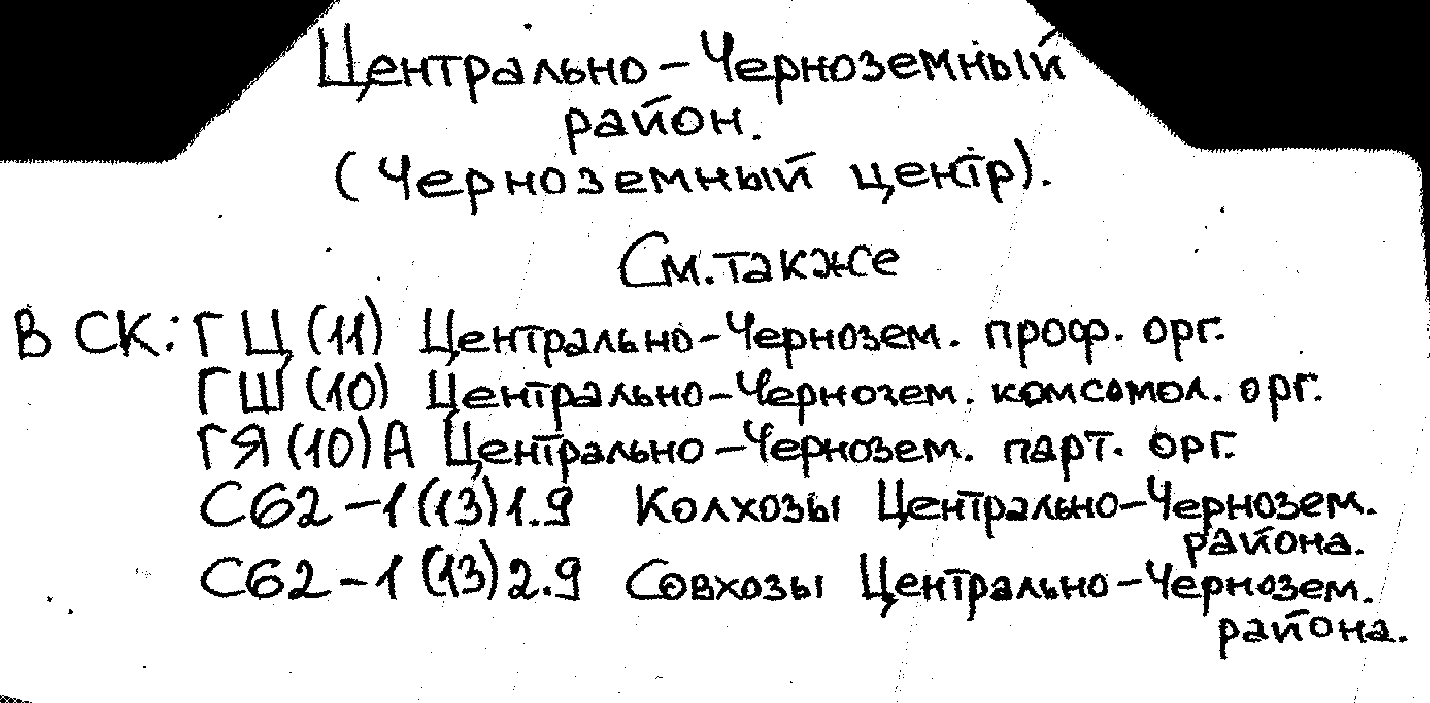 Центрально-Черноземный
район.
(Черноземный центр).
См. также
В СК: ГЦ (11) Центрально-Чернозем. проф. орг.
ГШ (10) Центрально-Чернозем. комсомол. орг.
ГЯ (10) А Центрально-Чернозем. парт. орг.
С62-1 (13) 1.9 Колхозы Центрально-Чернозем.
района.
С62-1 (13) 2.9 Совхозы Центрально-Чернозем.
района.